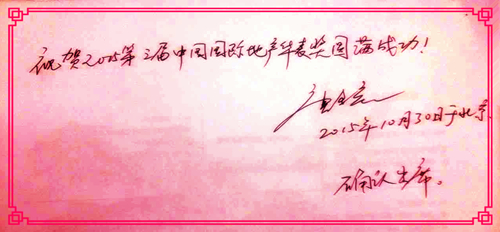 祝贺2015第三届中国国际地产华表奖圆满成功!
2015年10月30日于北京.
确认出席。